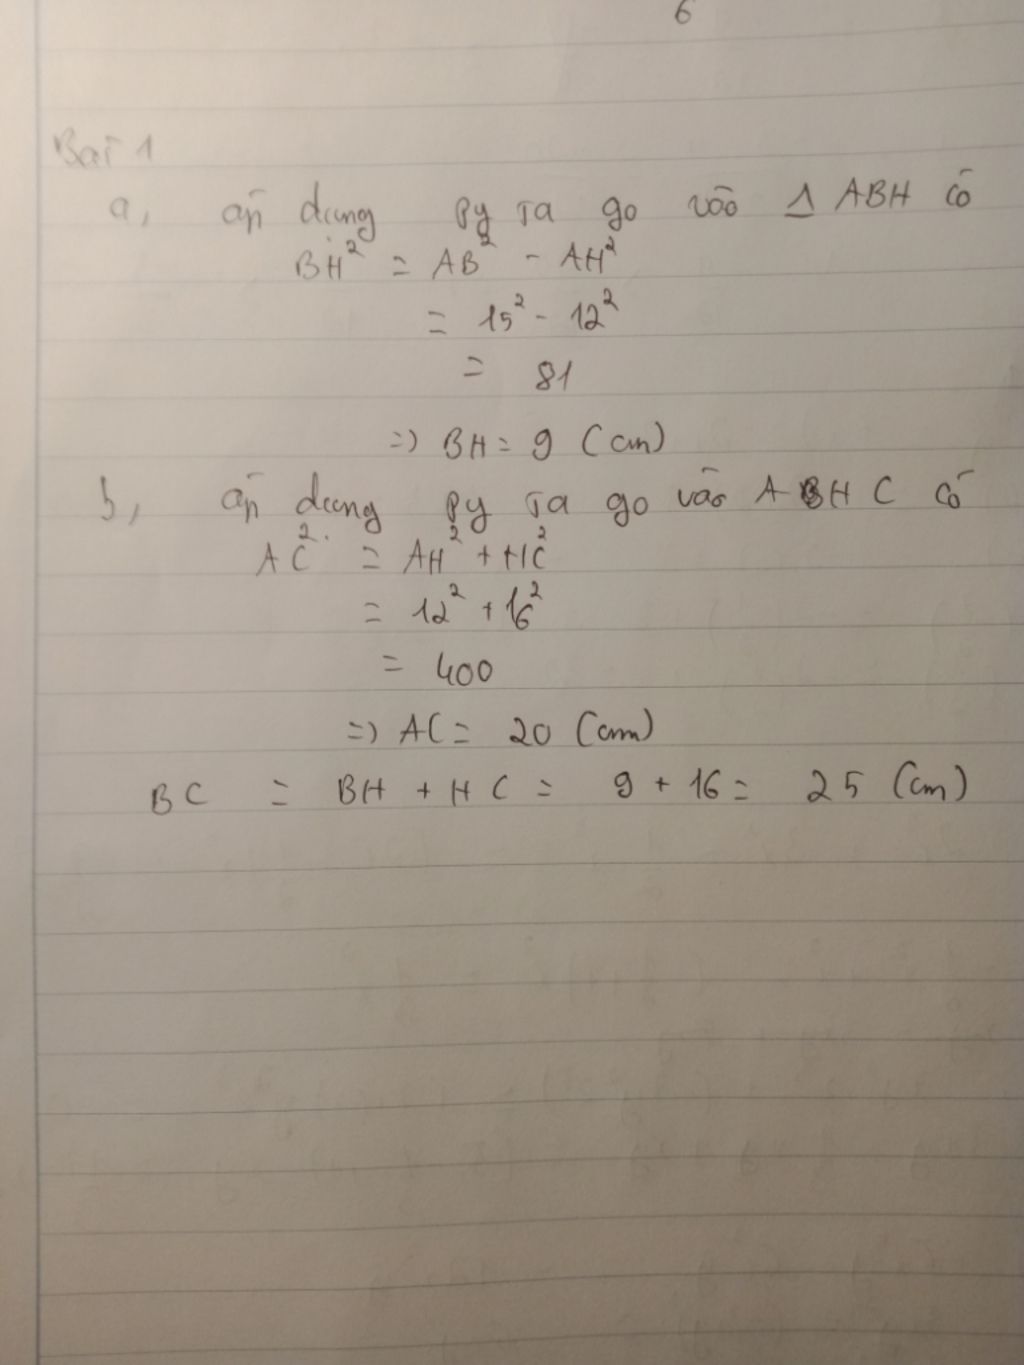 6
Bài 1
a, áp dụng Py Ta go vào Δ ABH có
BH² = AB² - AH²
= 15² - 12²
= 81
=> BH = 9 (cm)
b, áp dụng Py Ta go vào A HC có
AC² = AH² + HC²
= 12² + 16²
= 400
=> AC = 20 (cm)
BC = BH + HC = 9 + 16 = 25 (cm)